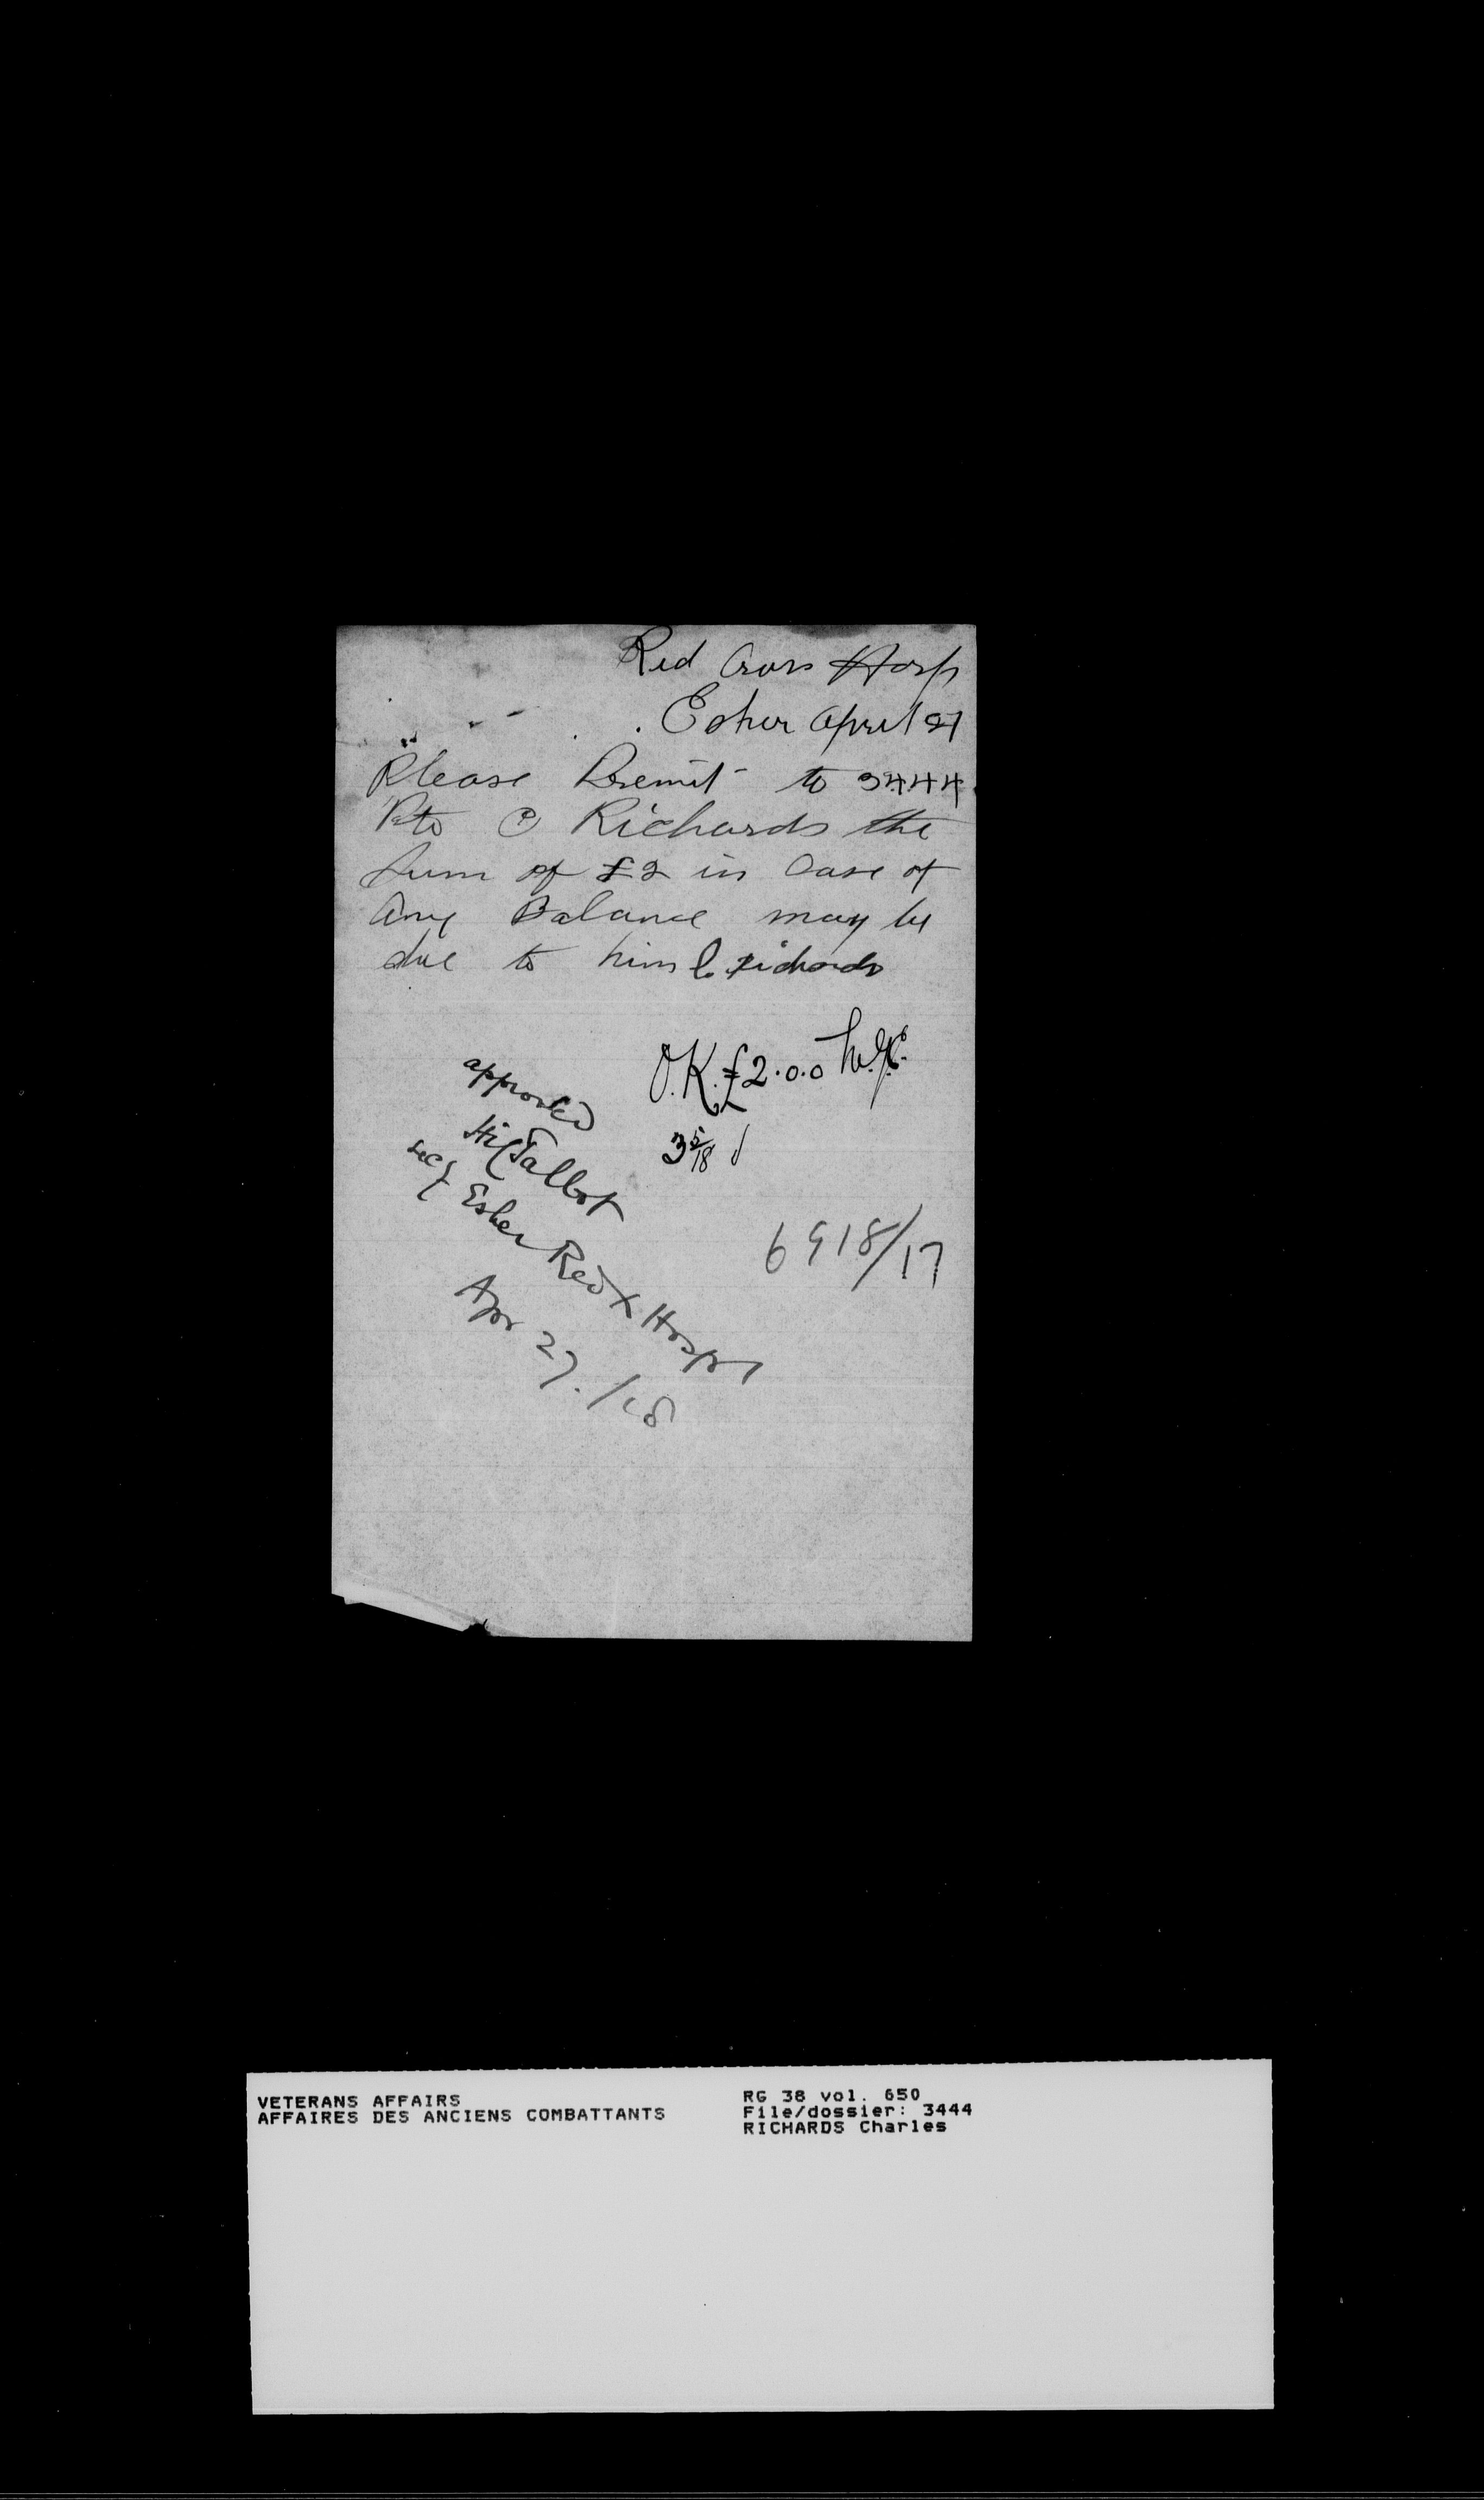 Red Cross Hosp
Esher April 27
Please Remit to 3444
Pte C Richards the
Sum of £2 in Case of
Any Balance may be
due to him C. Richards
O.K. £2.0.0
approved
3/5/18
Talbot
secy Esher Red X Hospl
6918/17
Apr 27./18
VETERANS AFFAIRS
AFFAIRES DES ANCIENS COMBATTANTS
RG 38 vol. 650
File/dossier: 3444
RICHARDS Charles